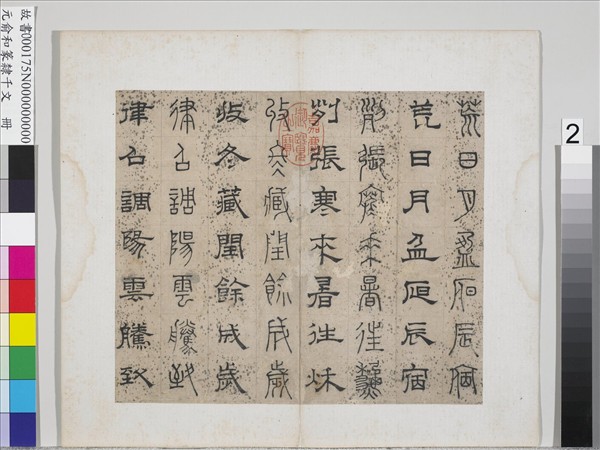 荒日月盈昃辰宿
荒日月盈昃辰宿
列張寒來暑往秋
列張寒來暑往秋
收冬藏閏餘成歲
收冬藏閏餘成歲
律召調陽雲騰致
律召調陽雲騰致
嘉慶御覽之寶
故書000175N000000000
元俞和篆隸千文 冊
2